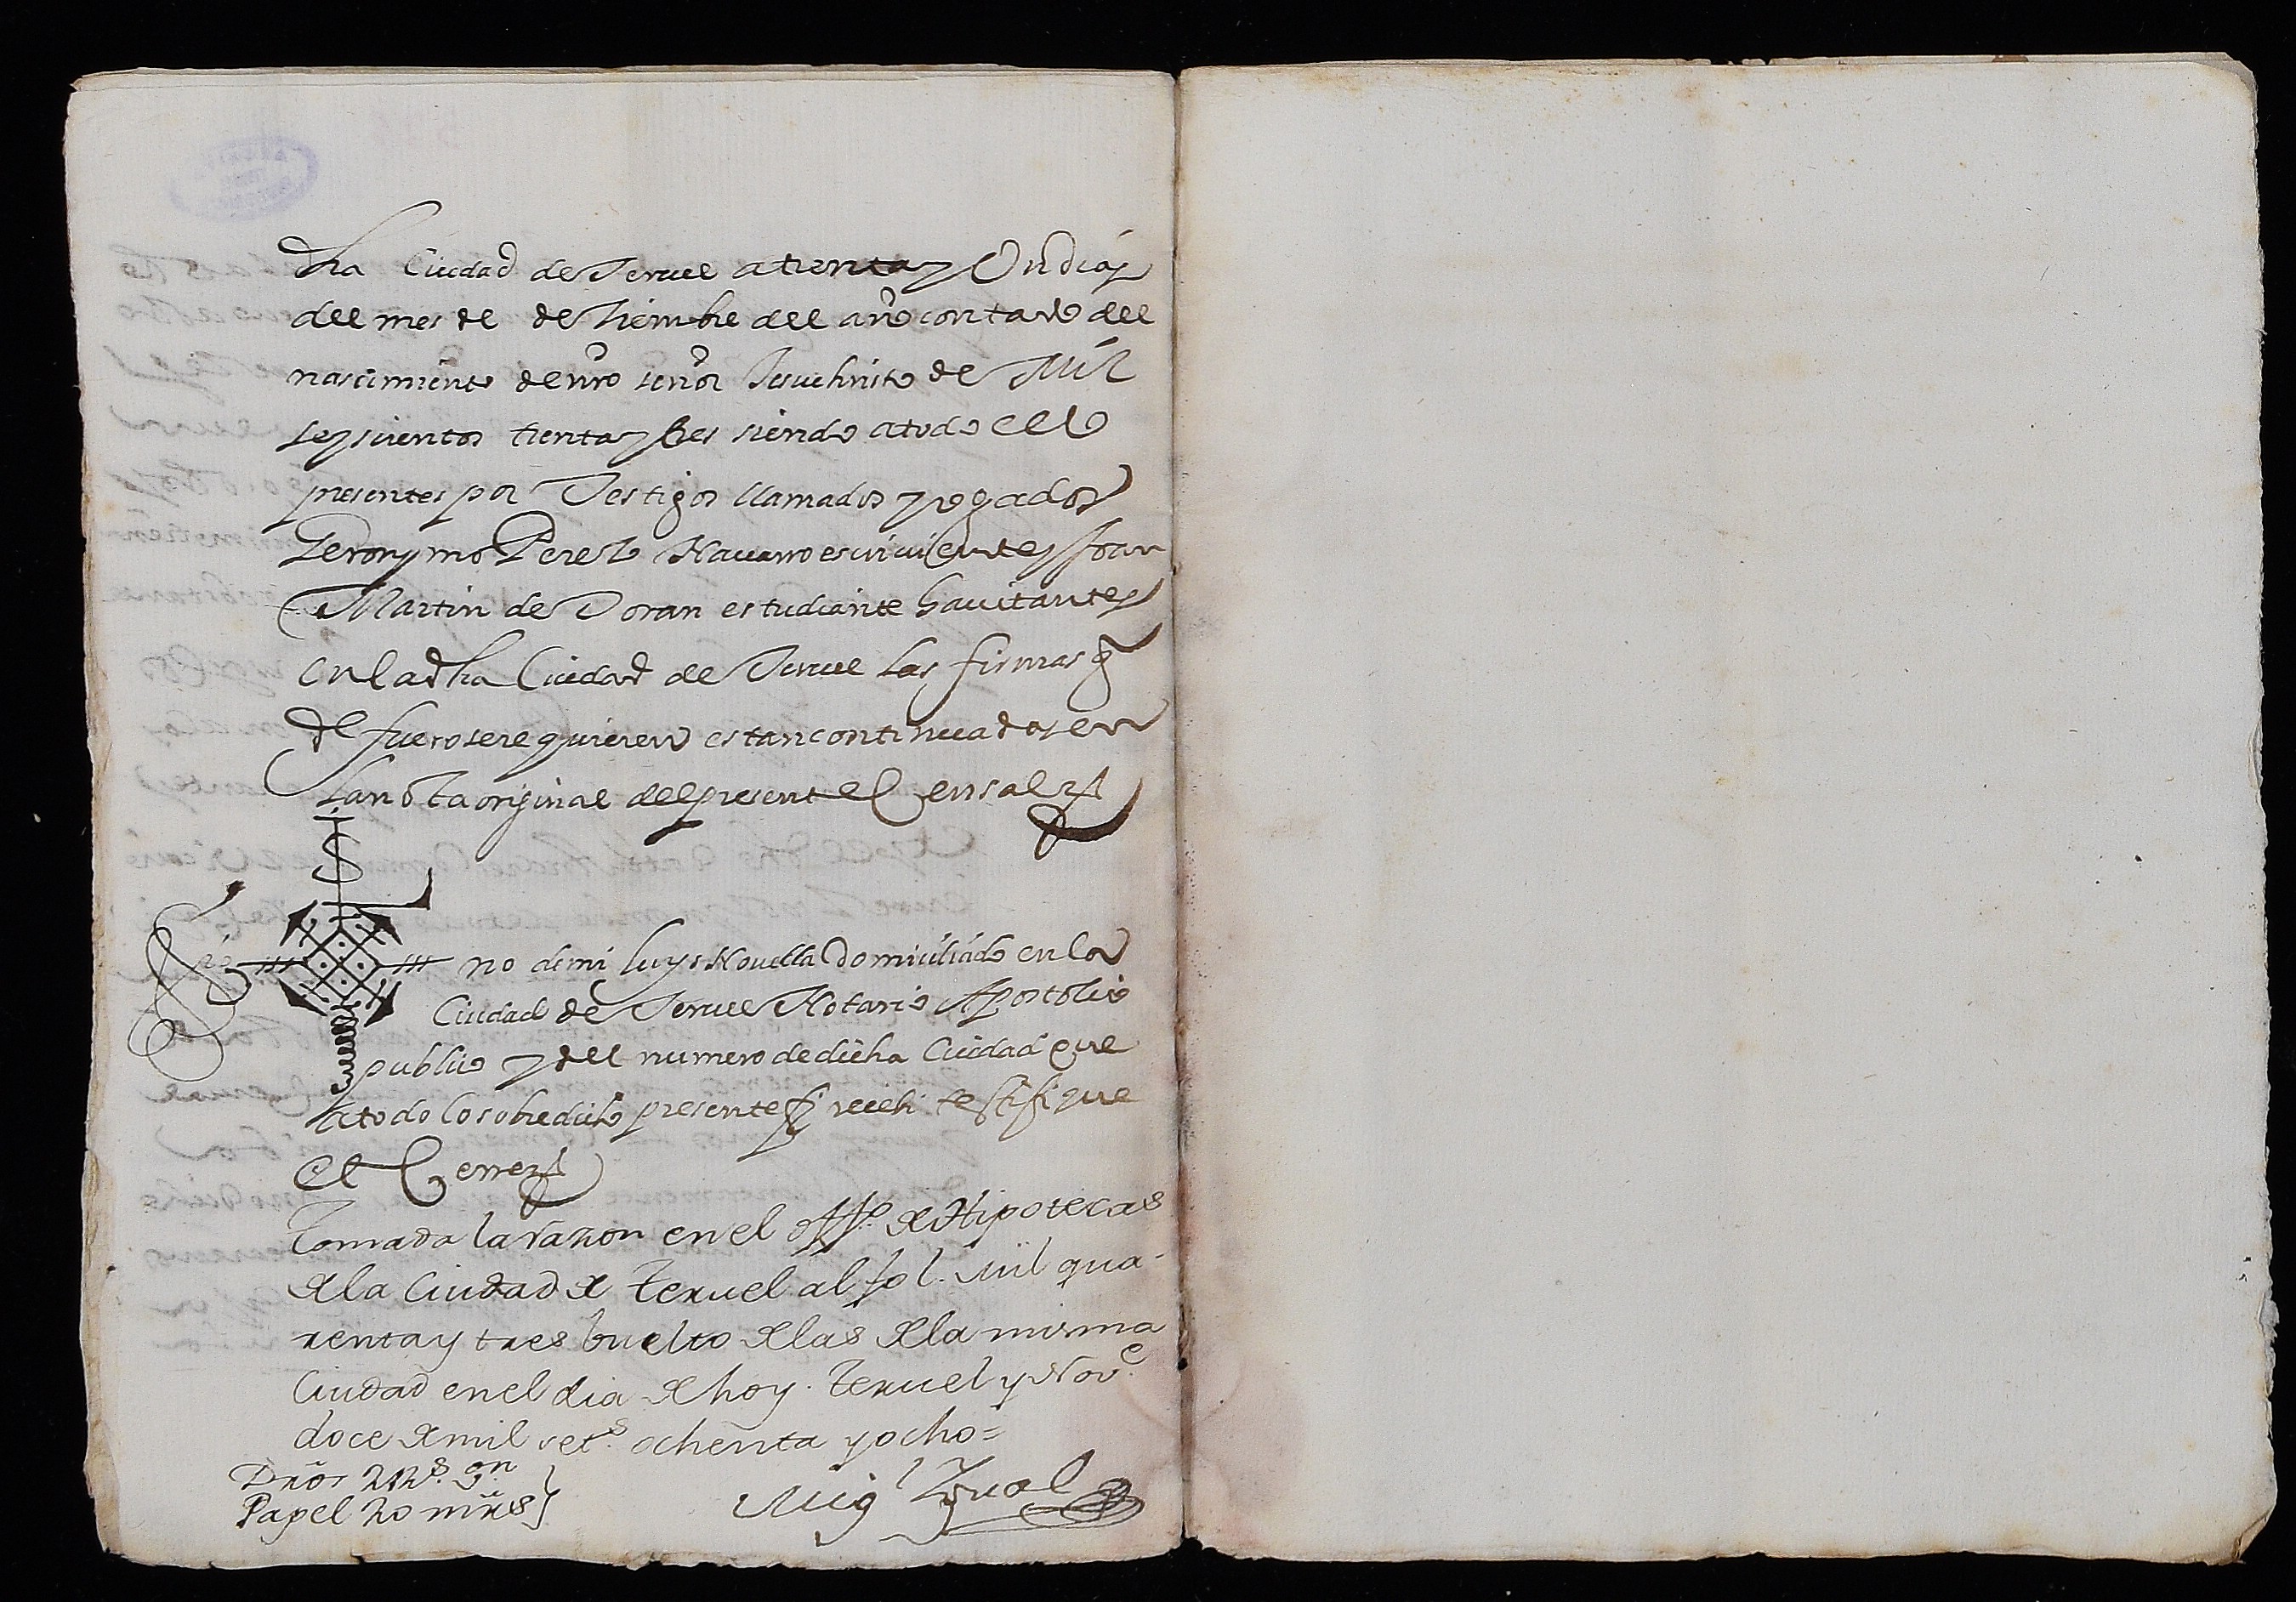 dha Ciudad de Teruel a trenta y Un dias
del mes de deziembre del año contado del
nascimiento de nro señor Jesuchristo de Mil
seyscientos trenta y tres siendo a todo ello
presentes por Testigos llamados y rogados
Jeronymo Perez Navarro escriviente y Joan
Martin de Doran estudiante havitantes
en la dha Ciudad de Teruel las firmas q
de fuero se requieren estan continuadas en
la nota original del presente Censal
Sig no de mi Luys Novella domiciliado en la
Ciudad de Teruel Notario Apostolico
publico y del numero de dicha Ciudad que
a todo lo sobredicho presente fui recebi testifique
et Cerre
Tomada la razon en el offº de Hipotecas
de la Ciudad de Teruel al fol. mil qua-
renta y tres buelto de las de la misma
Ciudad en el dia de hoy. Teruel y Nove.
doce de mil sets. ochenta y ocho=
Dros
Papel 20 mrs
Migl